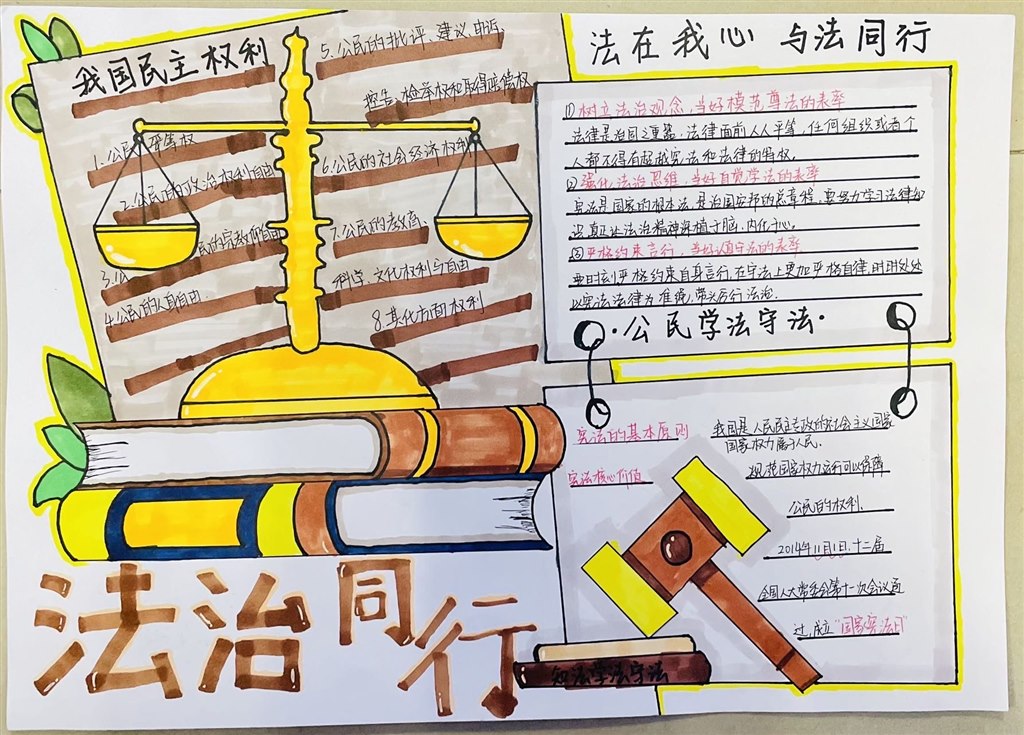 我国民主权利
1.公民平等权
2.公民的政治权利自由
3.公民的宗教信仰自由
4.公民的人身自由.
5.公民的批评、建议、申诉、
控告、检举权和取得赔偿权
6.公民的社会经济权利
7.公民的教育、
科学、文化权利与自由
8.其他方面权利
法在我心 与法同行
①树立法治观念,当好模范尊法的表率
法律是治国之重器.法律面前人人平等,任何组织或者个
人都不得有超越宪法和法律的特权.
②强化法治思维,当好自觉学法的表率
宪法是国家的根本法,是治国安邦的总章程,要努力学习法律知
识真正让法治精神深植于脑、内化于心。
③严格约束言行,当好遵守法的表率
要时刻严格约束自身言行,在守法上更加严格自律,时时处处
以宪法法律为准绳,带头厉行法治.
·公民学法守法·
宪法的基本原则
宪法核心价值
我国是人民民主专政的社会主义国家
国家权力属于人民.
规范国家权力运行可以保障
公民的权利.
2014年11月1日.十二届
全国人大常委会第十一次会议通
过,成立"国家宪法日"
知法学法守法
法治同行